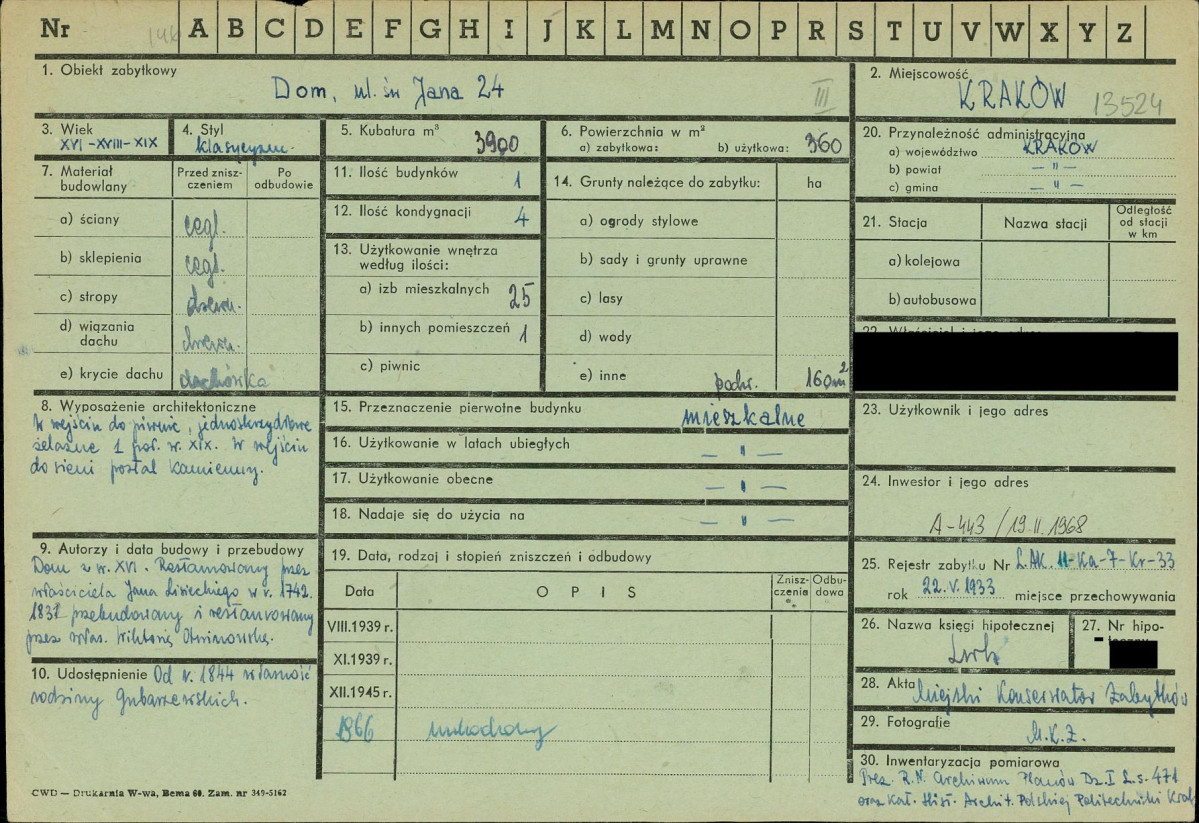 Nr 146 A B C D E F G H I J K L M N O P R S T U V W X Y Z
1. Obiekt zabytkowy
Dom, ul. św Jana 24
III
2. Miejscowość
KRAKÓW 13524
3. Wiek
XVI - XVIII - XIX
4. Styl
klasycyzm.
5. Kubatura m³ 3900
6. Powierzchnia w m²
a) zabytkowa: b) użytkowa: 360
7. Materiał budowlany
Przed zniszczeniem
Po odbudowie
a) ściany cegl.
b) sklepienia cegl.
c) stropy drewn.
d) wiązania dachu drewn.
e) krycie dachu dachówka
8. Wyposażenie architektoniczne
W wejściu do piwnic, jednoskrzydłowe
żelazne 1 poł. w. XIX. W wejściu
do sieni portal kamienny.
9. Autorzy i data budowy i przebudowy
Dom z w. XVI. Restaurowany przez
właściciela Jana Liweckiego w r. 1742.
1831 przebudowany i restaurowany
przez właśc. Wiktorię Otwinowską.
10. Udostępnienie Od r. 1844 własność
rodziny Gubarzewskich.
11. Ilość budynków 1
12. Ilość kondygnacji 4
13. Użytkowanie wnętrza
według ilości:
a) izb mieszkalnych 25
b) innych pomieszczeń 1
c) piwnic
14. Grunty należące do zabytku: ha
a) ogrody stylowe
b) sady i grunty uprawne
c) lasy
d) wody
e) inne podw. 160m²
15. Przeznaczenie pierwotne budynku mieszkalne
16. Użytkowanie w latach ubiegłych — " —
17. Użytkowanie obecne — " —
18. Nadaje się do użycia na — " —
19. Data, rodzaj i stopień zniszczeń i odbudowy
Data
OPIS
Zniszczenia %
Odbudowa
VIII.1939 r.
XI.1939 r.
XII.1945 r.
1966
20. Przynależność administracyjna
a) województwo KRAKÓW
b) powiat — " —
c) gmina — " —
21. Stacja
Nazwa stacji
Odległość od stacji w km
a) kolejowa
b) autobusowa
22. Właściciel i jego adres
23. Użytkownik i jego adres
24. Inwestor i jego adres
A-443 / 19.II.1968
25. Rejestr zabytku Nr L.AK. 11-Ka-7-Kr-33
rok 22.V.1933 miejsce przechowywania
26. Nazwa księgi hipotecznej
Lwh
27. Nr hipoteczny
28. Akta Miejski Konserwator Zabytków
29. Fotografie
M.K.Z.
30. Inwentaryzacja pomiarowa
Prez. R.N. Archiwum Planów Dz. I L.s. 471
oraz Kat. Hist. Archit. Polskiej Politechniki Krak
CWD — Drukarnia W-wa, Bema 60. Zam. nr 349-5162